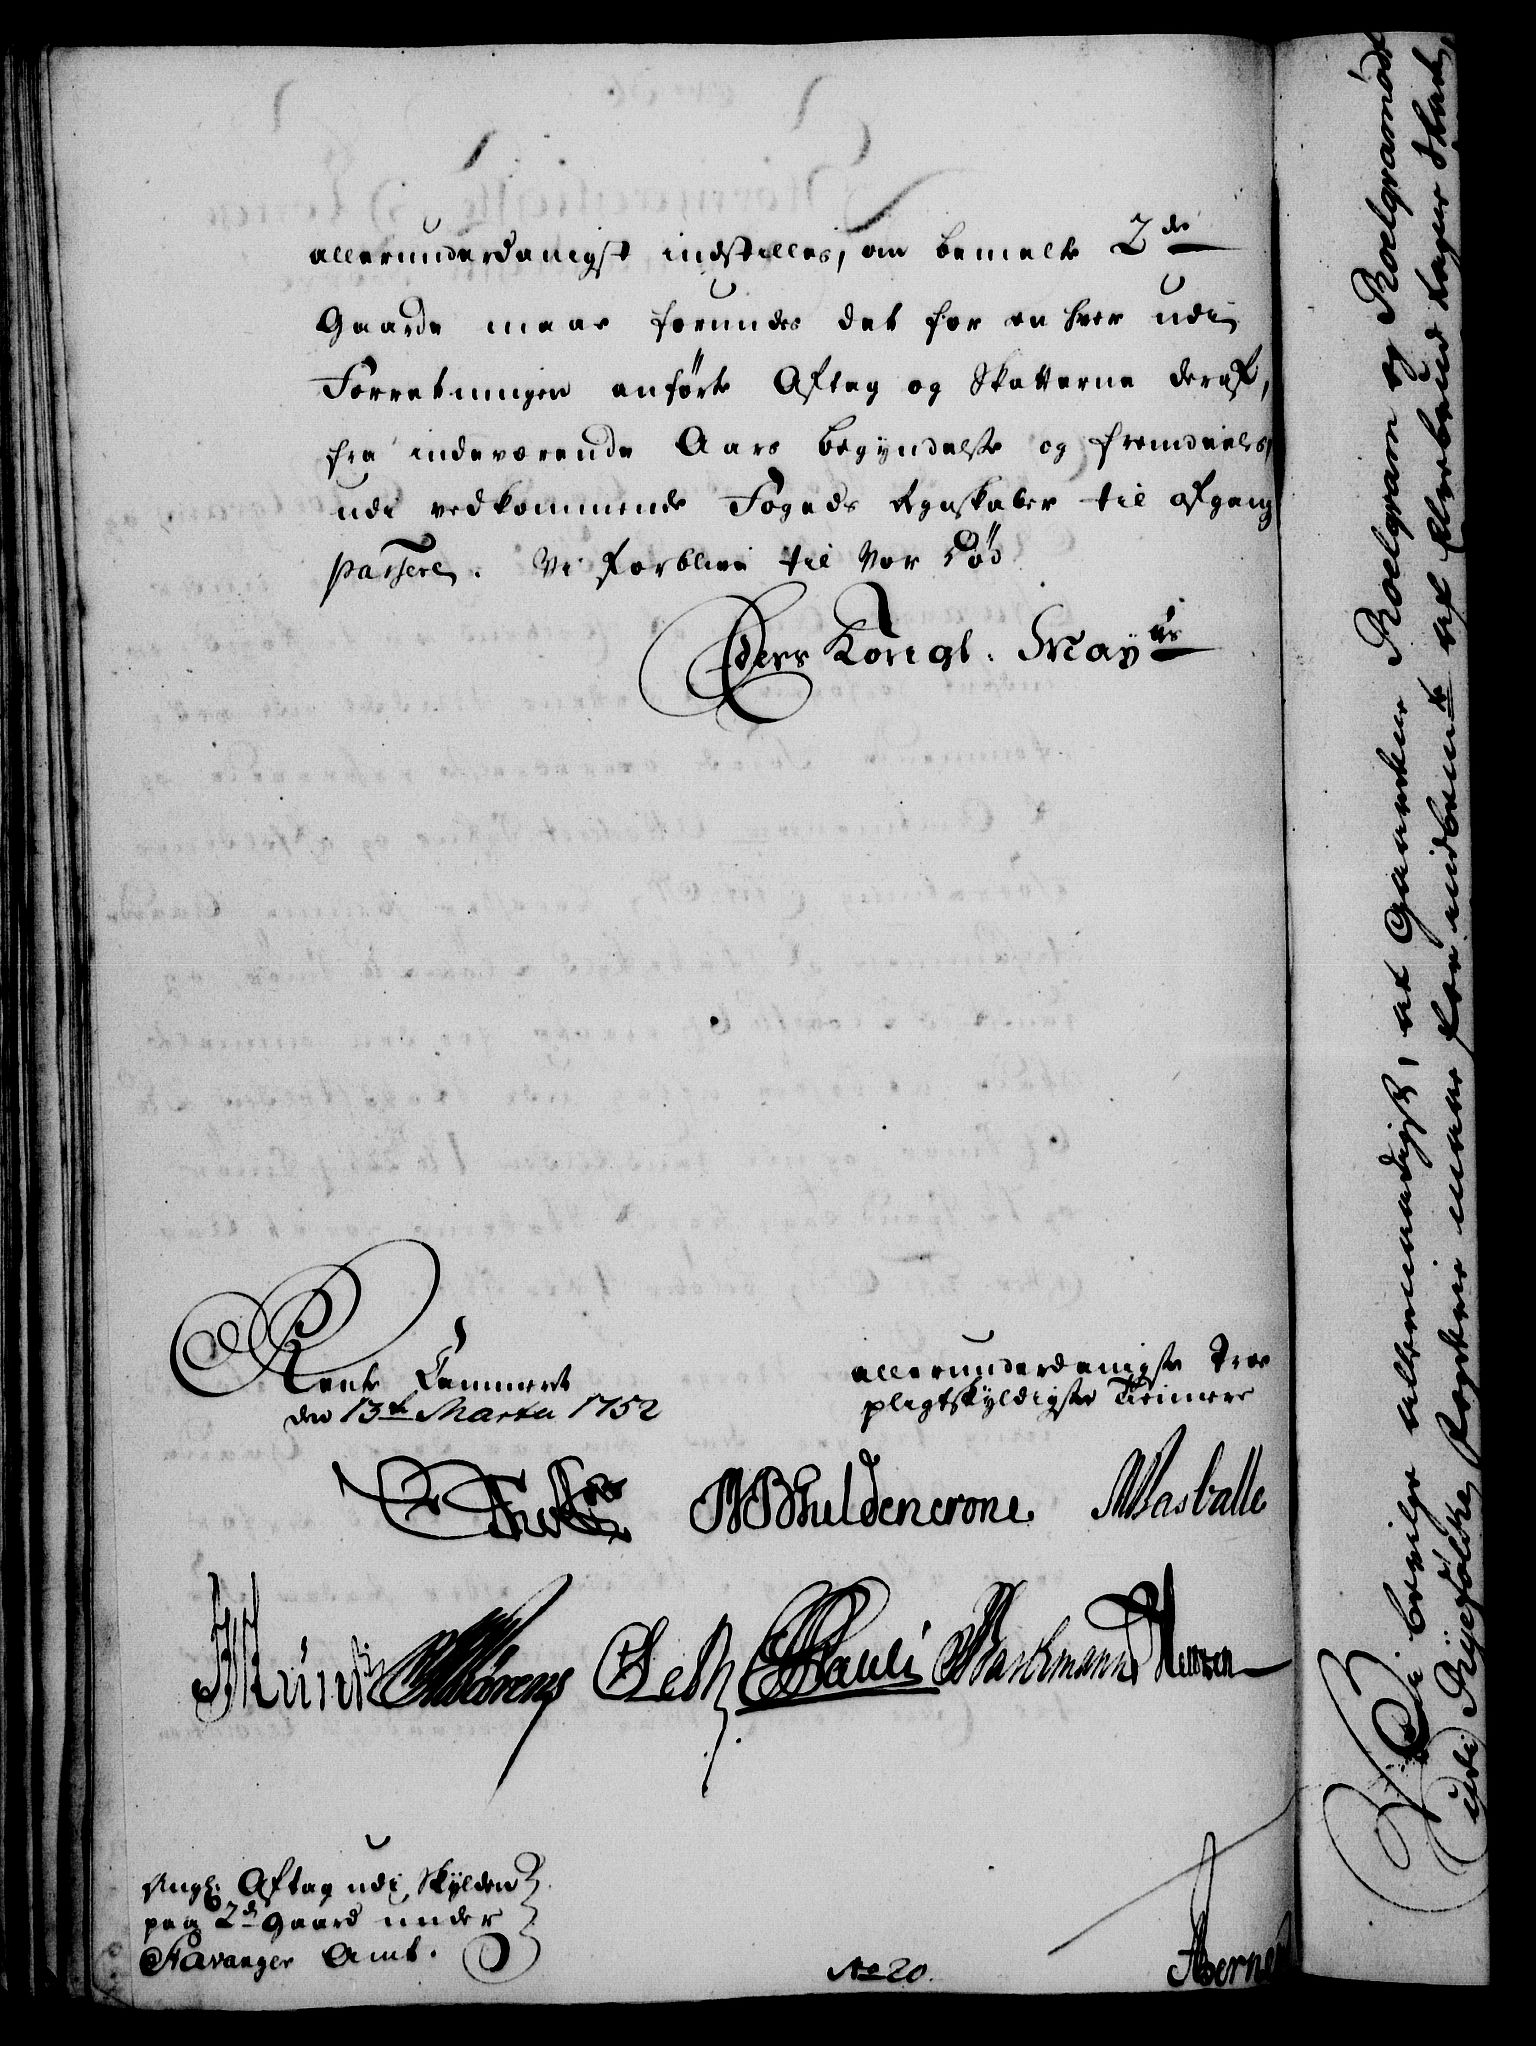 allerunderdanigst indstilles, om bemelte 2de
Gaarde maae forundes det for en hver udi
Forretningen anførte Aftag og Skatterne deraf,
fra indeværende Aars begyndelse og fremdeeles,
udi vedkommende Fogeds Regnskaber til afgang
passere. Vi forblive til vor Død
Eders Kongl. Mayts
Rente Cammeret
den 13de Martii 1752
allerunderdanigste Troe
pligtskyldigste Tiennere
HB Guldencrone. NBasballe
Leth Pauli
Angl: Aftag udi Skylden
paa 2de Gaard under
Stavanger Amt.
No 20.
Vi bevilge allernaadigst, at Gaardene Roelgram og Roelgramødt
udi Ryefolke Fogderie maae for midbem.te af Elvebrud tagne skade,